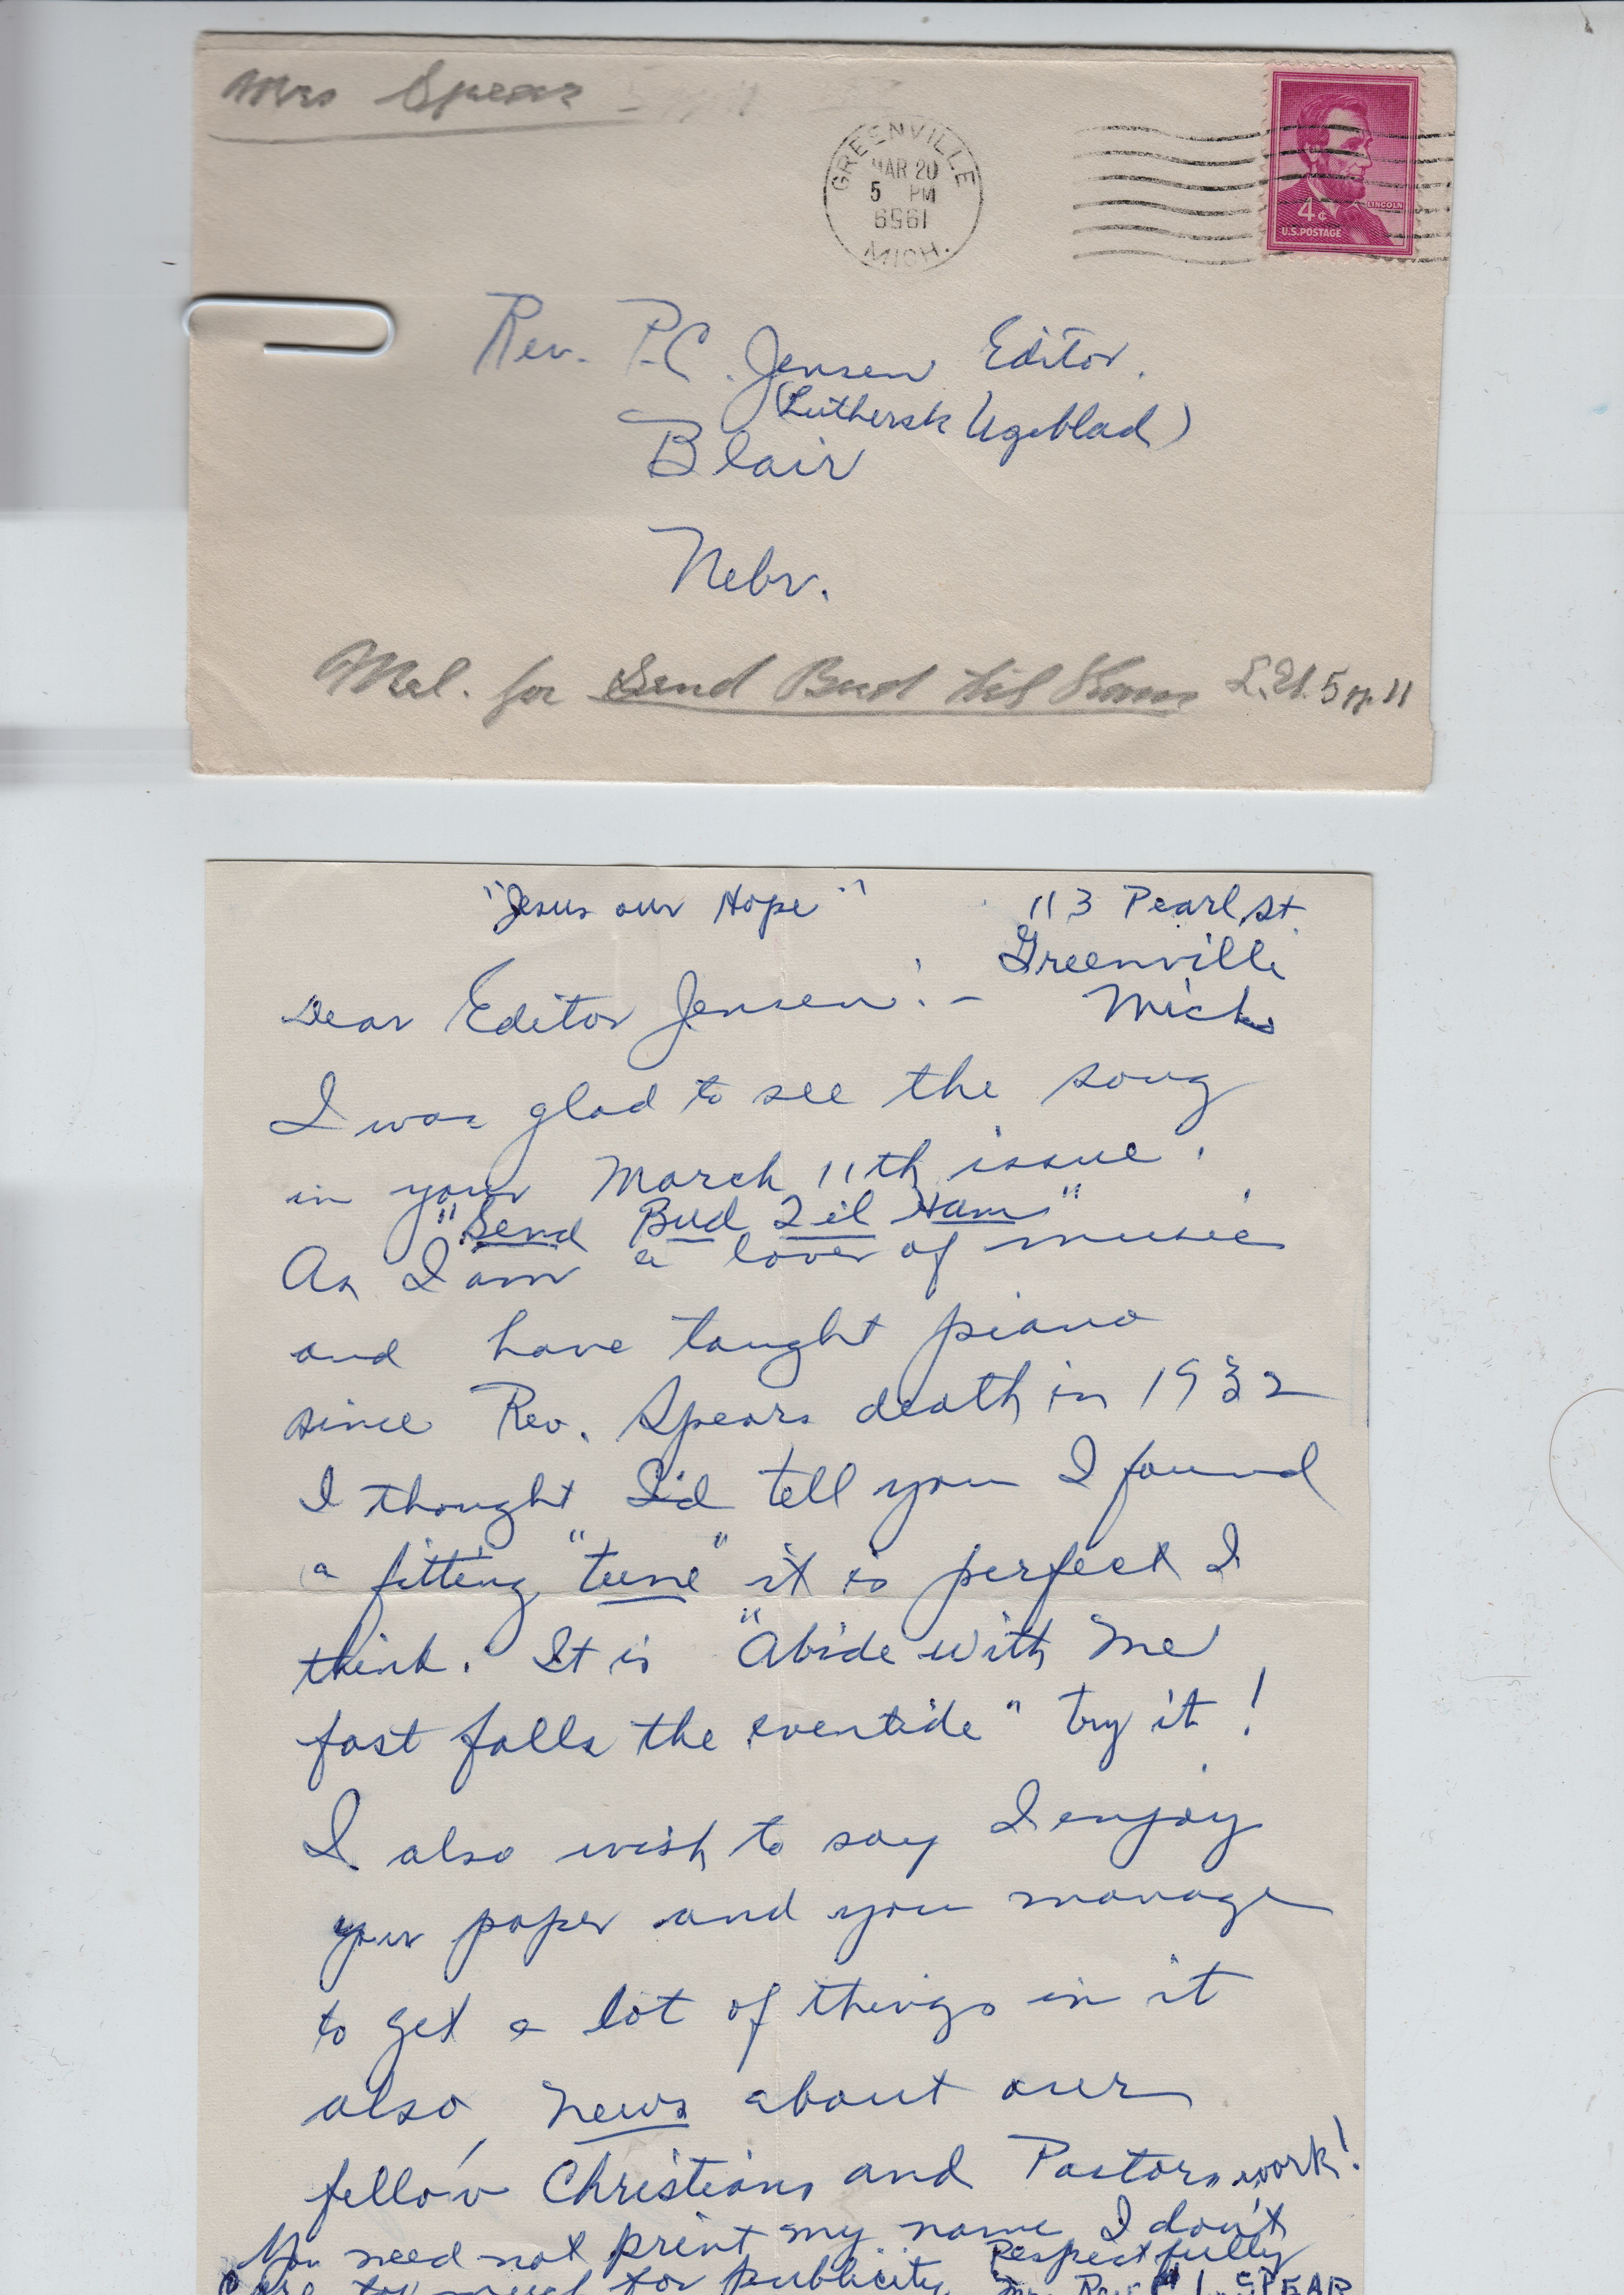 Mrs Spear
GREENVILLE
MAR 20
5 PM
1959
MICH.
LINCOLN
4¢
U.S. POSTAGE
Rev. P.C. Jensen Editor.
(Luthersk Ugeblad)
Blair
Nebr.
Mel. for Send Bud til Ham L.U. 5 p. 11
"Jesus our Hope" 113 Pearl St.
Greenville
Mich
Dear Editor Jensen:-
I was glad to see the song
in your March 11th issue.
"Send Bud Til Ham"
As I am a lover of music
and have taught piano
since Rev. Spears death in 1932
I thought I'd tell you I found
a fitting "tune" it is perfect I
think. It is "Abide with Me
fast falls the eventide" try it!
I also wish to say I enjoy
your paper and you manage
to get a lot of things in it
also, news about our
fellow Christians and Pastors work!
You need not print my name I don't
Respectfully
care too much for publicity.
Mrs Rev. P. L. SPEAR